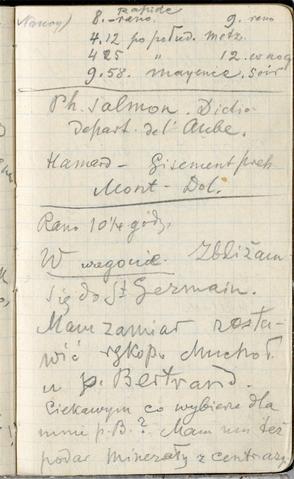 Nancy) 8. rano. rapide 9. rano
4.12 po połud. Metz.
4 25 " 12. w nocy
9.58. mayence. soir
Ph. Salmon. Dictio-
depart. de l'Aube.
Hamard - Gisement preh
Mont-Dol.
Rano 10 1/4 godz.
W wagonie. Zbliżam
się do St Germain.
Mam zamiar zosta-
wić rękop. Muchoł
u p. Bertrand.
Ciekawym co wybierze dla
mnie p. B.? Mam mu też
podać minerały z centr